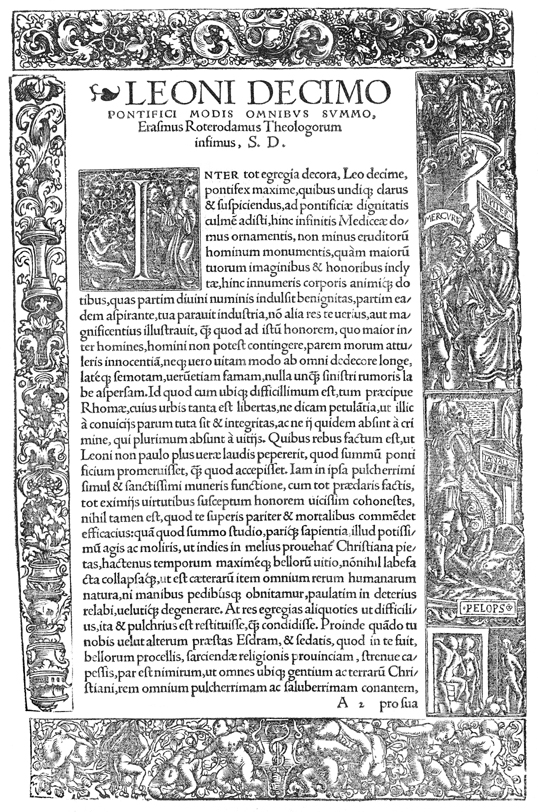 LEONI DECIMO
PONTIFICI MODIS OMNIBVS SVMMO,
Eraſmus Roterodamus Theologorum
infimus, S. D.
INTER tot egregia decora, Leo decime,
pontifex maxime, quibus undiqꝫ clarus
& ſuſpiciendus, ad pontificiæ dignitatis
culmẽ adiſti, hinc infinitis Mediceæ do⸗
mus ornamentis, non minus eruditorũ
hominum monumentis, quàm maiorũ
tuorum imaginibus & honoribus incly
tæ, hinc innumeris corporis animiqꝫ do
tibus, quas partim diuini numinis indulſit benignitas, partim ea⸗
dem aſpirante, tua parauit induſtria, nõ alia res te uerius, aut ma⸗
gnificentius illuſtrauit, q̃ꝫ quod ad iſtũ honorem, quo maior in⸗
ter homines, homini non poteſt contingere, parem morum attu⸗
leris innocentiã, neqꝫ uero uitam modo ab omni dedecore longe,
lateqꝫ ſemotam, uerũetiam famam, nulla unq̃ꝫ ſiniſtri rumoris la
be aſperſam. Id quod cum ubiqꝫ difficillimum eſt, tum præcipue
Rhomæ, cuius urbis tanta eſt libertas, ne dicam petulãtia, ut illic
à conuicijs parum tuta ſit & integritas, ac ne ij quidem abſint à cri
mine, qui plurimum abſunt à uitijs. Quibus rebus factum eſt, ut
Leoni non paulo plus ueræ laudis pepererit, quod ſummũ ponti
ficium promeruiſſet, q̃ꝫ quod accepiſſet. Iam in ipſa pulcherrimi
ſimul & ſanctiſſimi muneris functione, cum tot præclaris factis,
tot eximijs uirtutibus ſuſceptum honorem uiciſſim cohoneſtes,
nihil tamen eſt, quod te ſuperis pariter & mortalibus commẽdet
efficacius: quã quod ſummo ſtudio, pariqꝫ ſapientia, illud potiſſi⸗
mũ agis ac moliris, ut indies in melius prouehat᷑ Chriſtiana pie⸗
tas, hactenus temporum maximeqꝫ bellorũ uitio, nõnihil labefa
cta collapſaqꝫ, ut eſt cæterarũ item omnium rerum humanarum
natura, ni manibus pedibusqꝫ obnitamur, paulatim in deterius
relabi, uelutiqꝫ degenerare. At res egregias aliquoties ut difficili⸗
us, ita & pulchrius eſt reſtituiſſe, q̃ꝫ condidiſſe. Proinde quãdo tu
nobis uelut alterum præſtas Eſdram, & ſedatis, quod in te fuit,
bellorum procellis, ſarciendæ religionis prouinciam, ſtrenue ca⸗
peſſis, par eſt nimirum, ut omnes ubiqꝫ gentium ac terrarũ Chri⸗
ſtiani, rem omnium pulcherrimam ac ſaluberrimam conantem,
A 2 pro ſua
IOB
MERCVRI
PELOPS